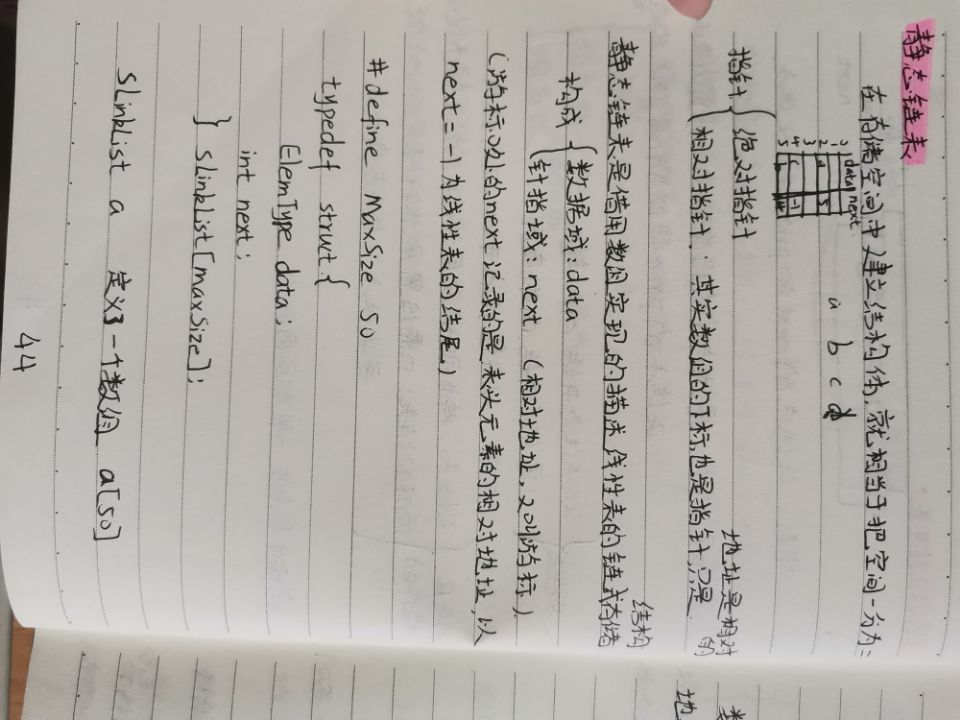 静态链表
在存储空间中建立结构体,就相当于把空间一分为=
data next
1
2 a 5
3
4 c -1
5 b 4
a b c d
指针 { 绝对指针
相对指针:其实数组的下标也是指针,只是
地址是相对的
静态链表是借用数组实现的描述线性表的链式存储
结构
构成 { 数据域:data
针指域:next (相对地址,又叫游标)
(游标0处的next记录的是表头元素的相对地址,以
next=-1为线性表的结尾)
#define MaxSize 50
typedef struct {
ElemType data;
int next;
} SLinkList[maxSize];
SLinkList a 定义了一个数组 a[50]
44